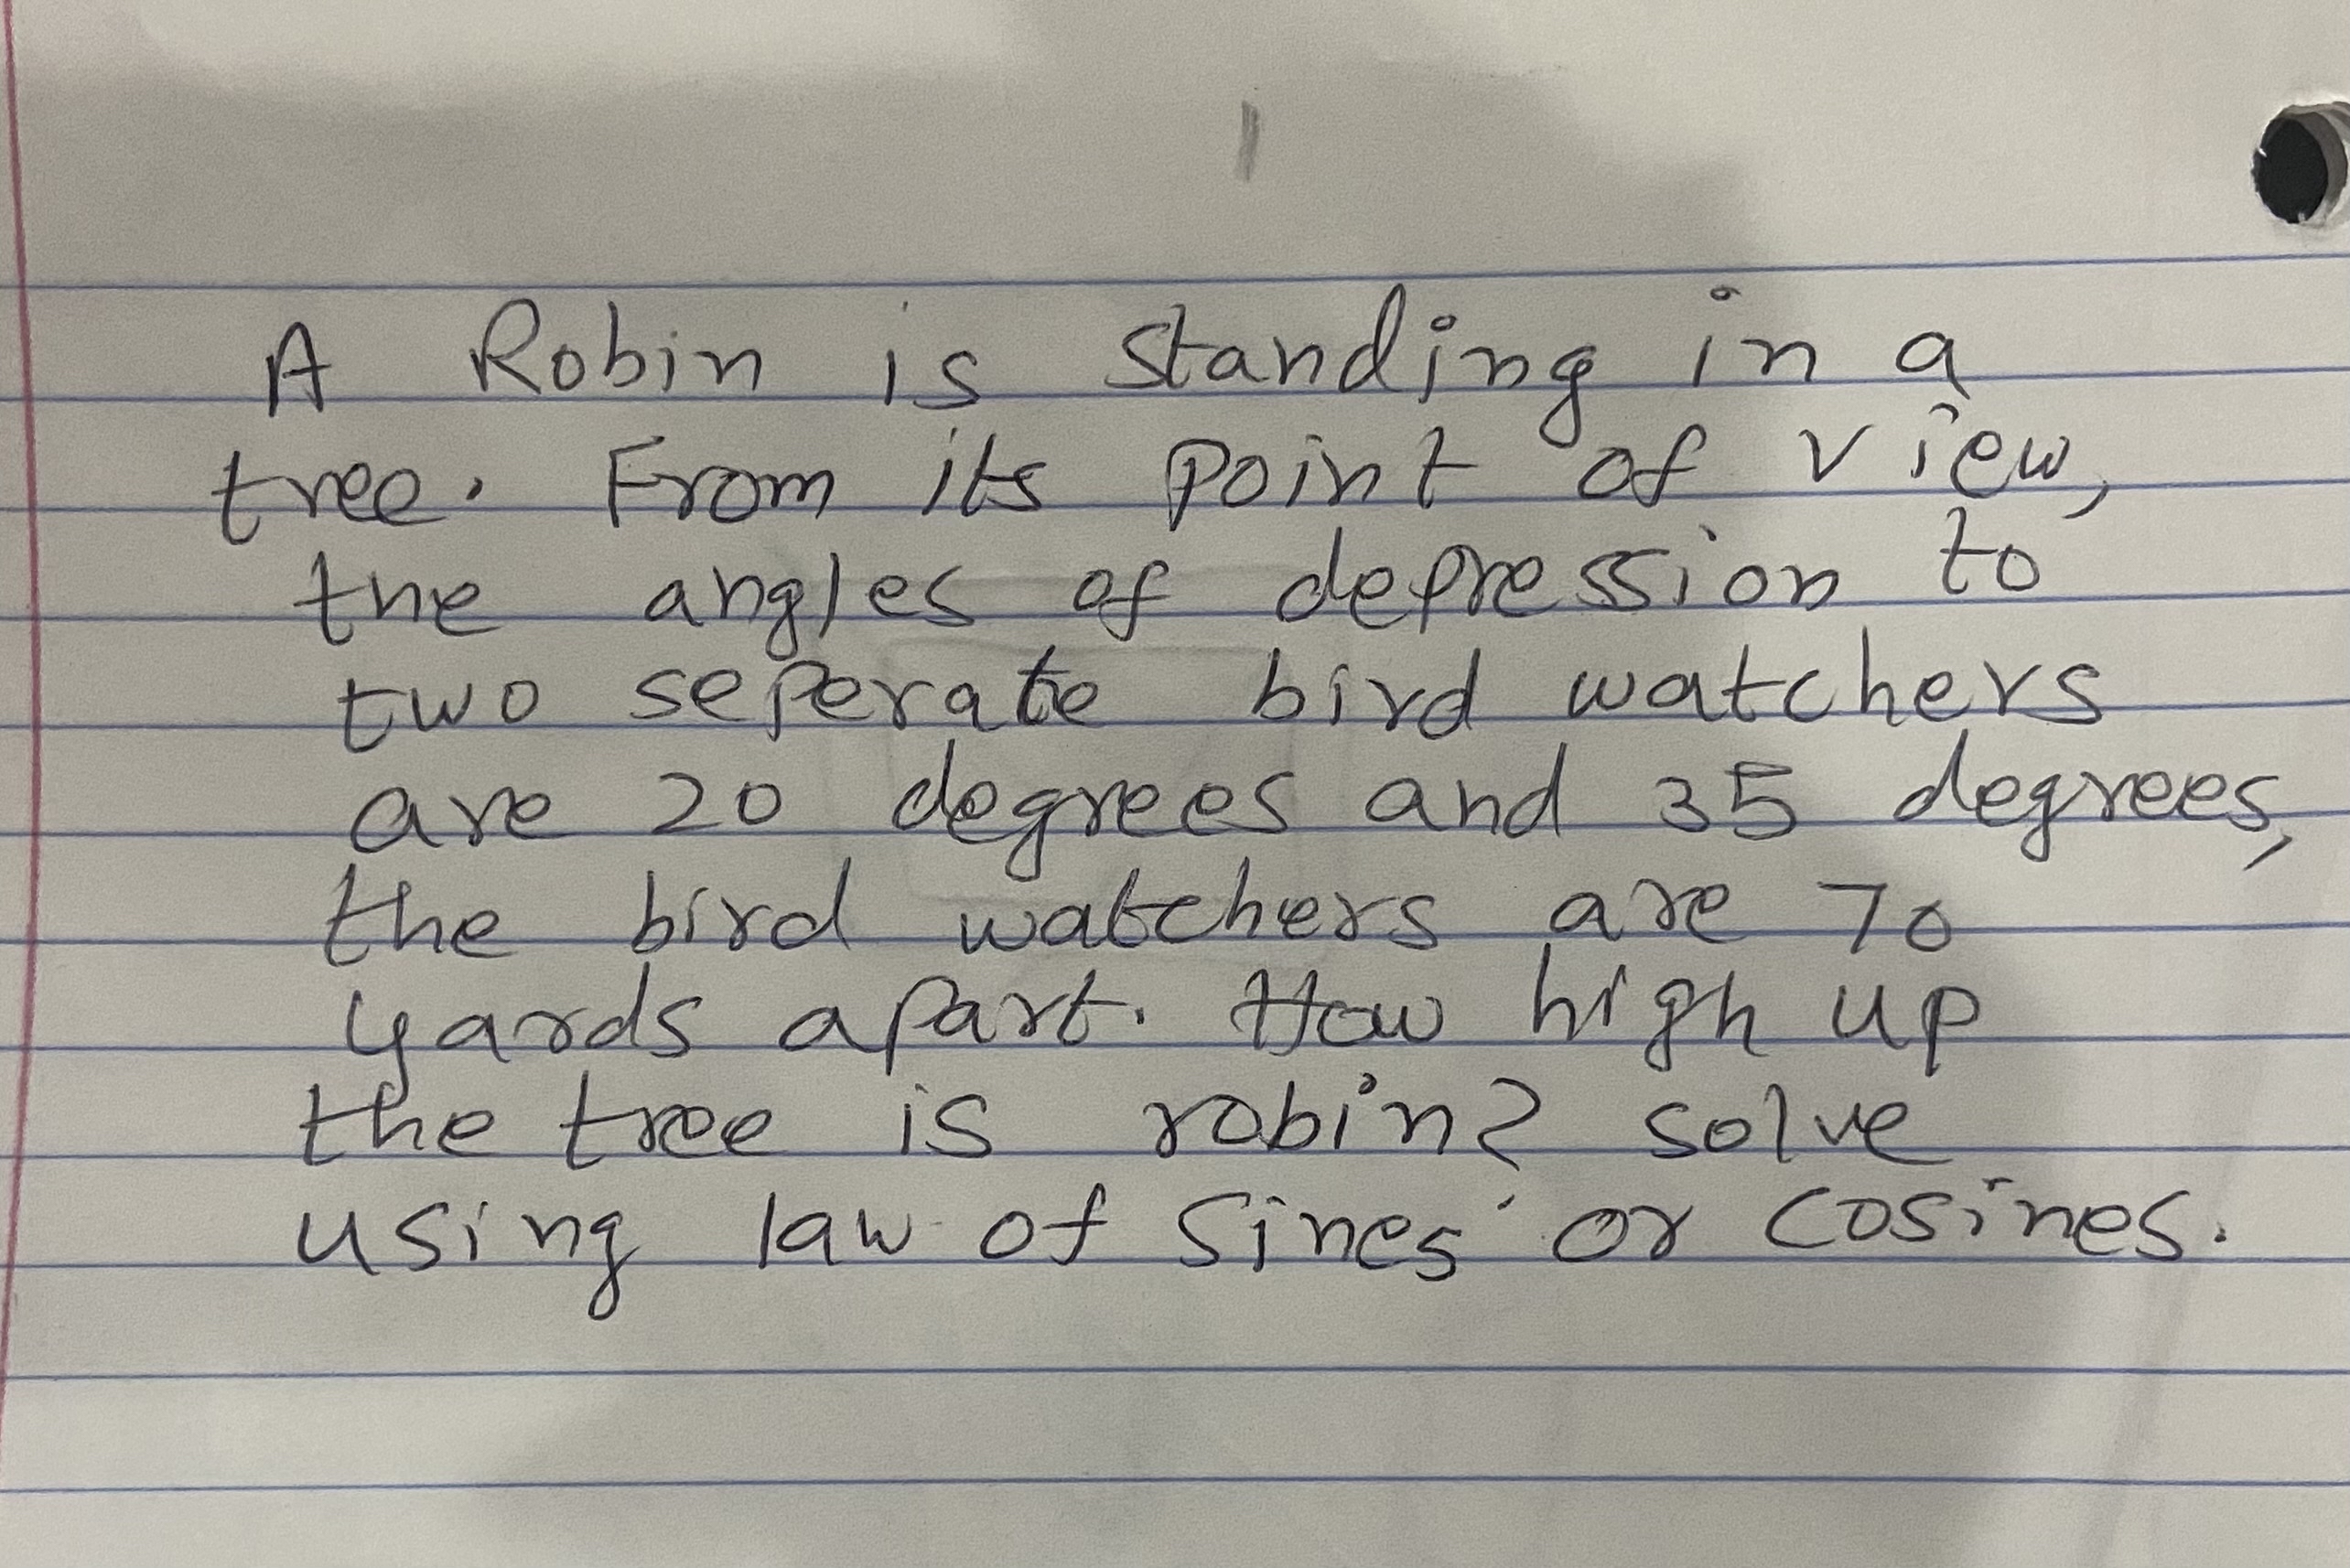 A Robin is standing in a
tree. From its point of view,
the angles of depression to
two seperate bird watchers
are 20 degrees and 35 degrees,
the bird watchers are 70
yards apart. How high up
the tree is robin? solve
using law of sines or cosines.